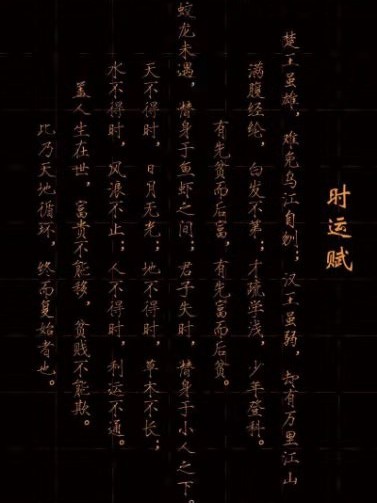 时运赋
楚王虽雄，难免乌江自刎；汉王虽弱，却有万里江山
满腹经纶，白发不第；才疏学浅，少年登科。
有先贫而后富，有先富而后贫。
蛟龙未遇，潜身于鱼虾之间；君子失时，潜身于小人之下。
天不得时，日月无光；地不得时，草木不长；
水不得时，风浪不止；人不得时，利运不通。
盖人生在世，富贵不能移，贫贱不能欺。
此乃天地循环，终而复始者也。